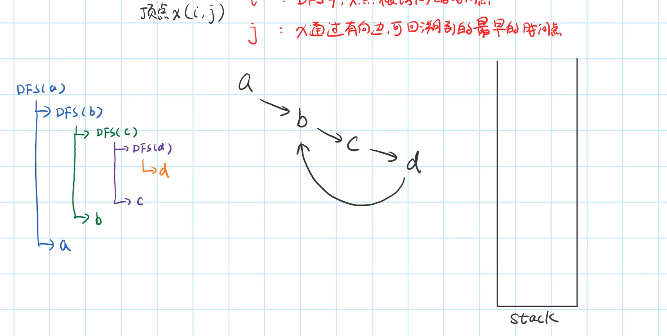 i : DFS中,x点被访问的时间点
顶点x(i,j)
j : x通过有向边,可回溯到的最早的时间点
DFS(a)
DFS(b)
DFS(c)
DFS(d)
d
c
b
a
a
b
c
d
stack